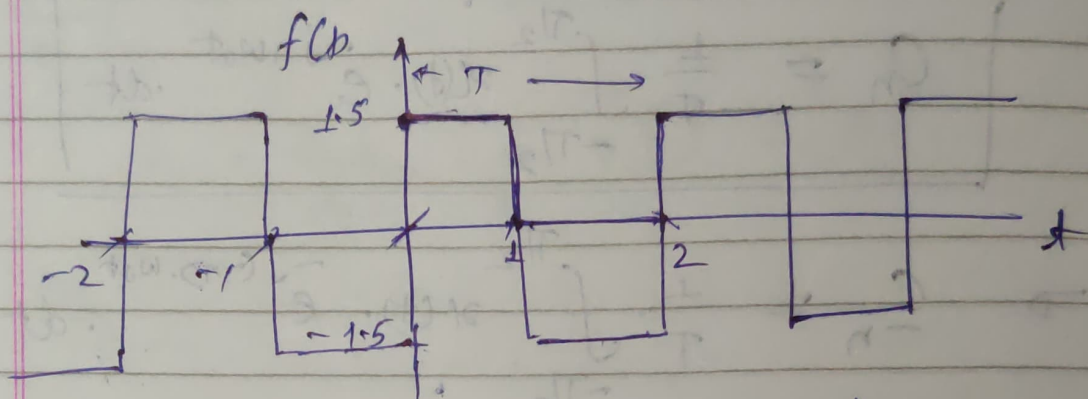 f(t)
← T →
1.5
-2 -1 1 2 t
-1.5